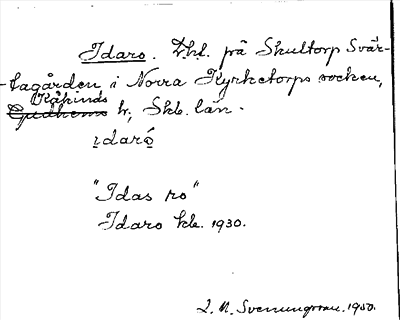 Idaro. Lht. på Skultorp Svär-
-tagården, i Norra Kyrketorps socken,
Kåkinds
Gudhems hd, Skb. län.
ɩdarǫ́
"Idas ro"
Idaro kbl. 1930.
L. M. Svenungsson. 1950.